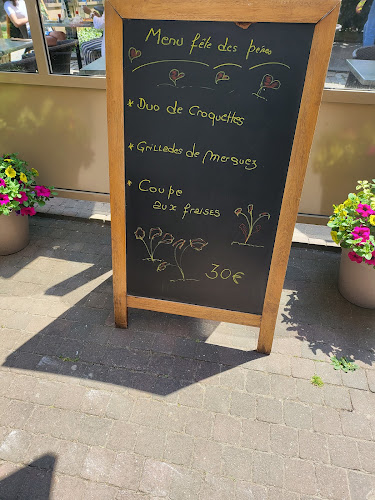 Menu fête des pères
* Duo de Croquettes
* Grillades de merguez
* Coupe
aux fraises
30€